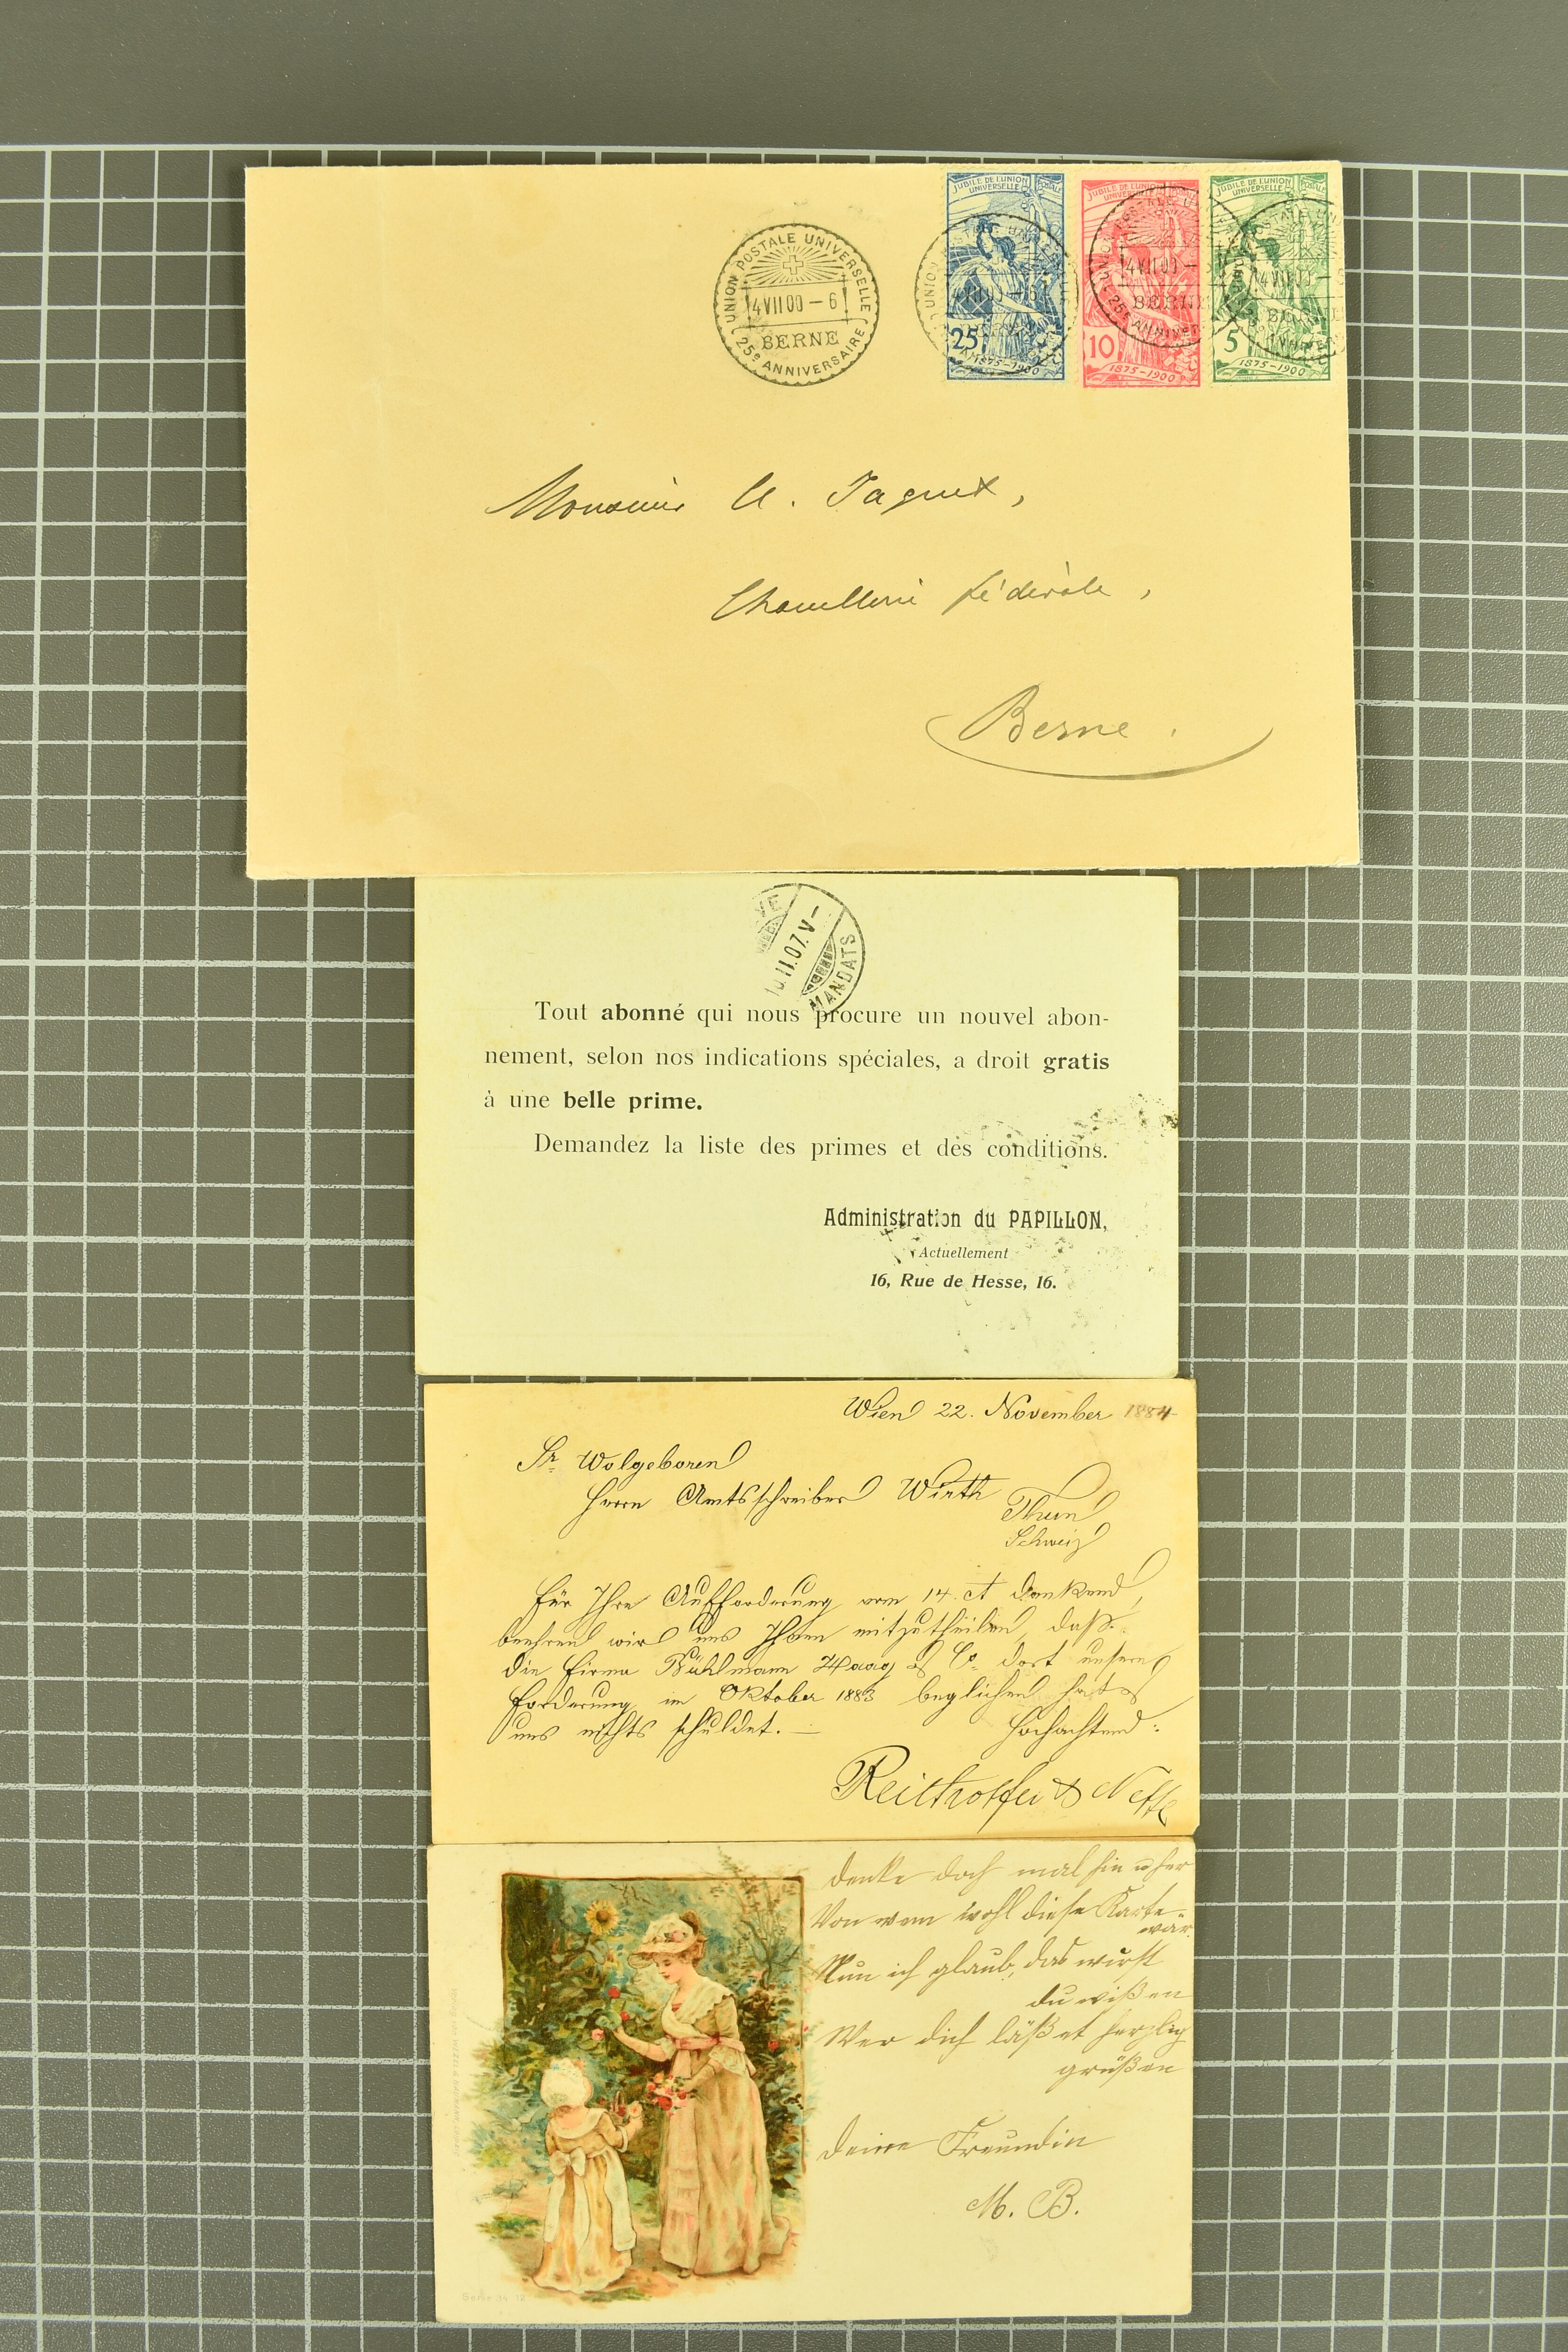 JUBILÉ DE L'UNION POSTALE UNIVERSELLE
25
1875-1900
JUBILÉ DE L'UNION POSTALE UNIVERSELLE
10
1875-1900
JUBILÉ DE L'UNION POSTALE UNIVERSELLE
5
1875-1900
UNION POSTALE UNIVERSELLE
4 VII 00 – 6
BERNE
25e ANNIVERSAIRE
Monsieur
Chancellerie fédérale,
Berne.
10.II.07.V –
MANDATS
Tout abonné qui nous procure un nouvel abon-
nement, selon nos indications spéciales, a droit gratis
à une belle prime.
Demandez la liste des primes et des conditions.
Administration du PAPILLON,
Actuellement
16, Rue de Hesse, 16.
Wien 22. November 1884
Sr. Wolgeboren
Herrn Amtsschreiber Wirth
Thun
Schweiz
Für Ihre Aufforderung vom 14. ct dankend,
beehren wir uns Ihnen mitzutheilen, daß
die Firma Bühlmann Haag & Co. dort unsere
Forderung im Oktober 1883 beglichen hat &
uns nichts schuldet. —
Hochachtend:
Reithoffer & Neffe
Denke doch mal hin u her
Von wem wohl diese Karte
wär.
Nun ich glaub, das wirst
du wißen
Wer dich läßet herzlig
grüßen
Deine Freundin
M. B.